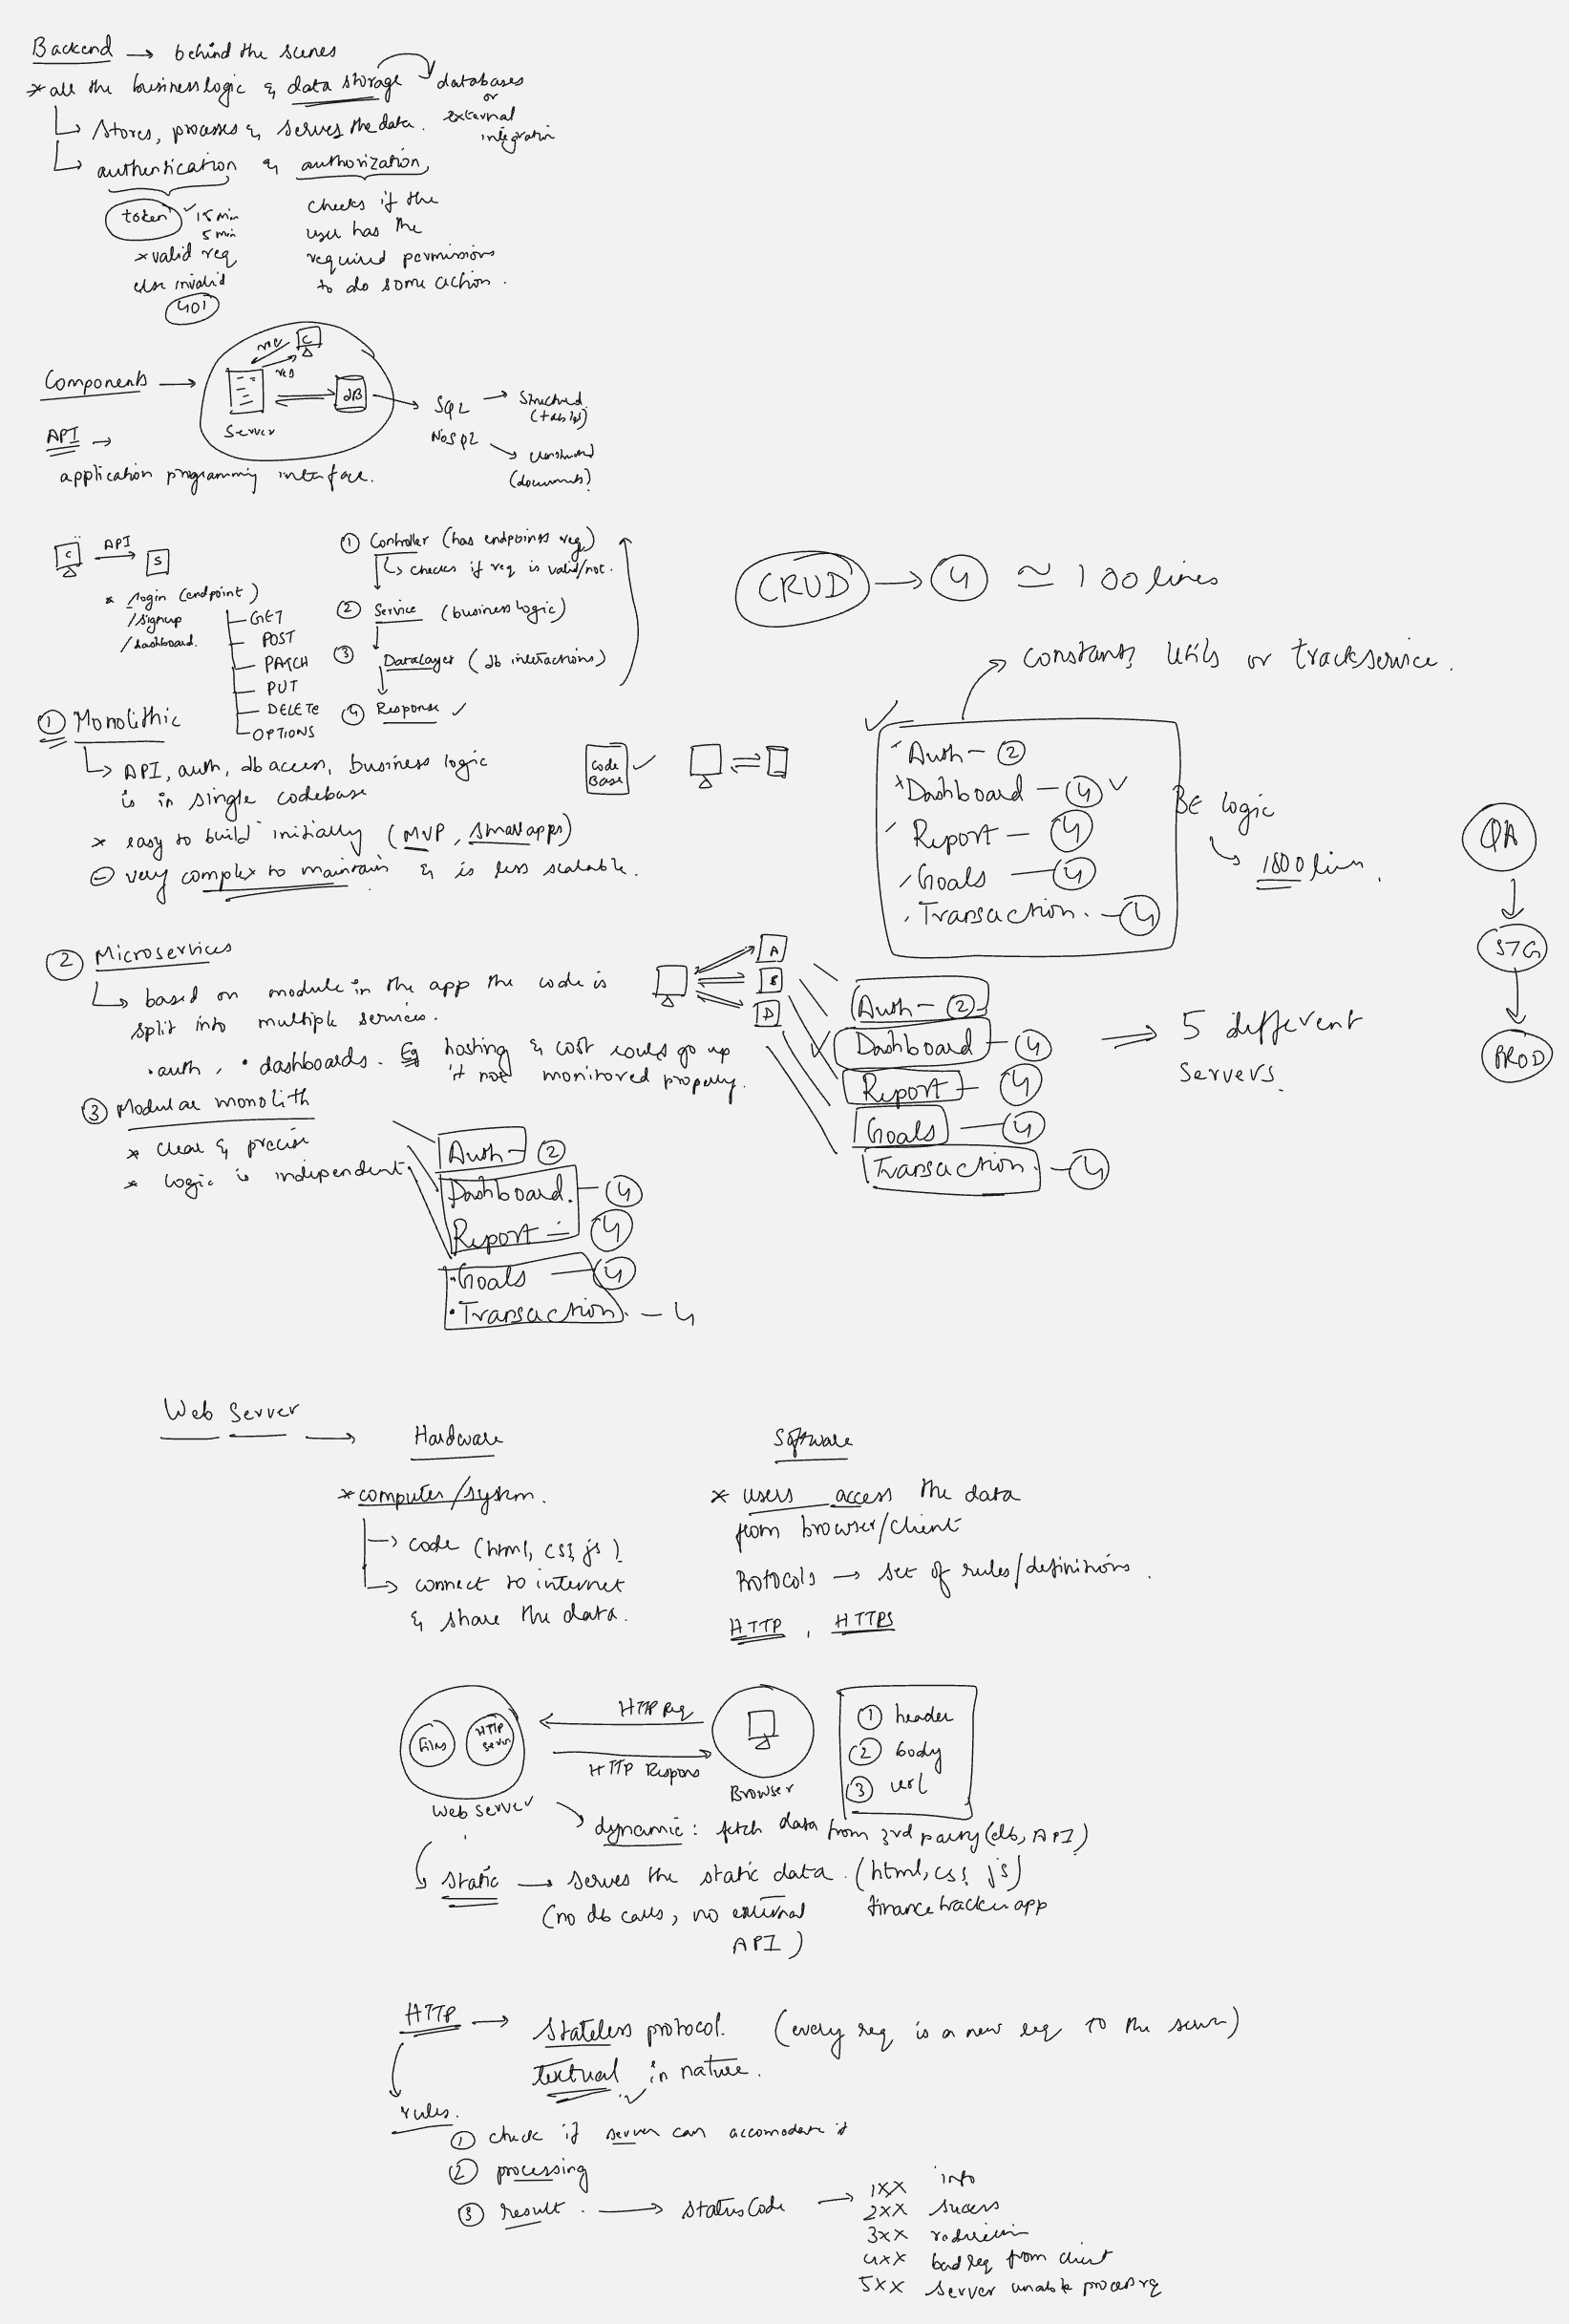 Backend → behind the scenes
* all the business logic & data storage → databases
or
external
integration
↳ stores, processes & serves the data.
↳ authentication & authorization,
token ✓ 15 min
5 min
* valid req
else invalid
401
checks if the
user has the
required permissions
to do some action.
Components →
C
req
res
Server
DB
SQL → Structured
(tables)
NoSQL →
(documents)
API →
application programming interface.
C API → S
* /login (endpoint)
/signup
/dashboard.
GET
POST
PATCH
PUT
DELETE
OPTIONS
① Controller (has endpoints req)
↳ checks if req is valid/not.
② Service (business logic)
③ Datalayer (db interactions)
④ Response ✓
CRUD → 4 ≃ 100 lines
→ constants, utils or trackservice.
① Monolithic
↳ API, auth, db access, business logic
is in single codebase
* easy to build initially (MVP, small apps)
⊖ very complex to maintain & is less scalable.
Code
Base
✓
Auth - ②
* Dashboard - ④ ✓
Report - ④
Goals - ④
Transaction. - ④
BE logic
↳ 1800 lines.
QA
STG
PROD
② Microservices
↳ based on module in the app the code is
split into multiple services.
• auth, • dashboards. Eg hosting & cost could go up
if not monitored properly.
A
S
D
Auth - ②
Dashboard - ④
Report - ④
Goals - ④
Transaction. - ④
⇒ 5 different
servers.
③ Modular monolith
* clear & precise
* logic is independent
Auth - ②
Dashboard. - ④
Report - ④
• Goals - ④
• Transaction. - 4
Web Server →
Hardware
* computer/system.
→ code (html, css, js)
↳ connect to internet
& share the data.
Software
* users access the data
from browser/client
Protocols → set of rules/definitions.
HTTP, HTTPS
Files
HTTP
Server
Web server
HTTP Req
HTTP Respons
Browser
① header
② body
③ url
dynamic: fetch data from 3rd party (db, API)
↳ static → serves the static data. (html, css, js)
(no db calls, no external
API)
finance tracker app
HTTP → stateless protocol. (every req is a new req to the server)
textual in nature.
rules.
① check if server can accomodate it
② processing
③ result. → status Code →
1XX info
2XX sucess
3XX
4XX bad req from client
5XX server unable process req